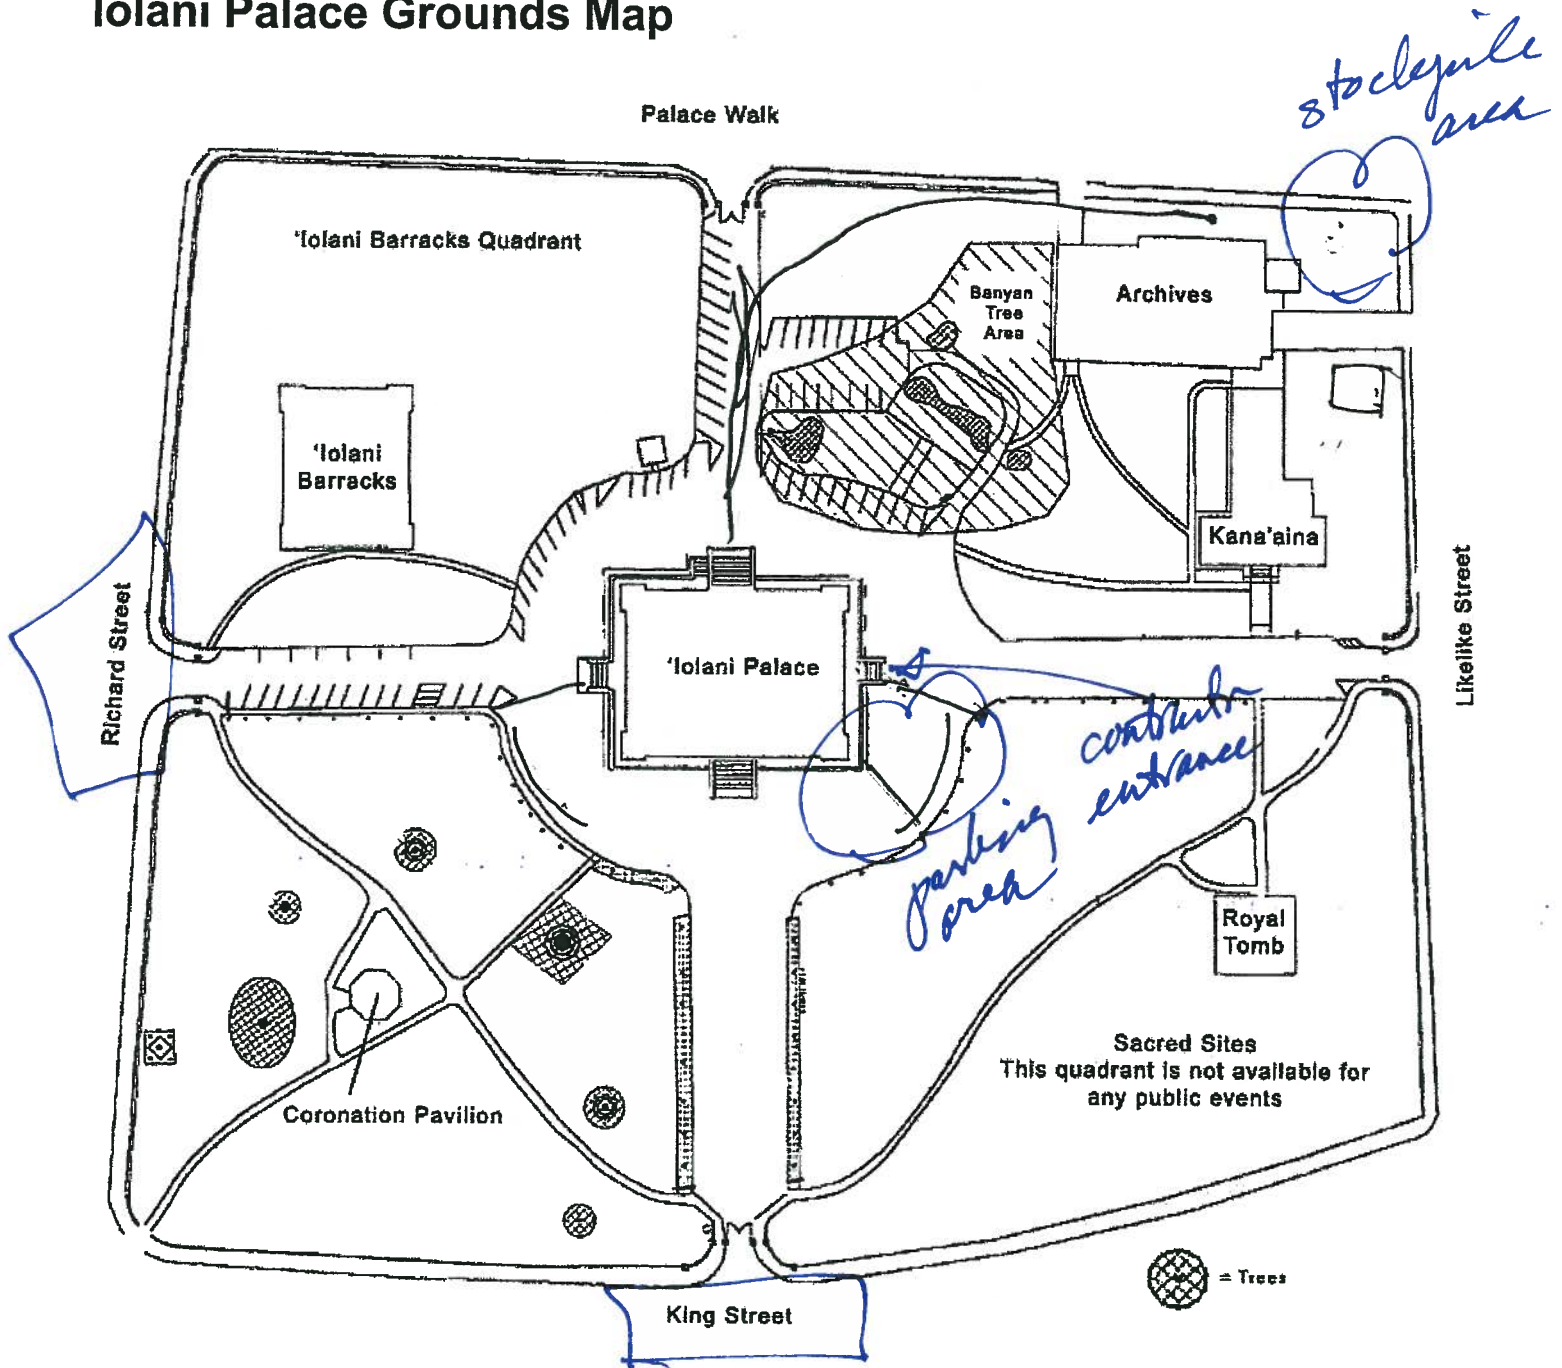 Iolani Palace Grounds Map
stockpile
area
Palace Walk
'Iolani Barracks Quadrant
Banyan
Tree
Area
Archives
'Iolani
Barracks
Kana'aina
Richard Street
'Iolani Palace
Likelike Street
contractor
entrance
parking
area
Royal
Tomb
Sacred Sites
This quadrant is not available for
any public events
Coronation Pavilion
= Trees
King Street